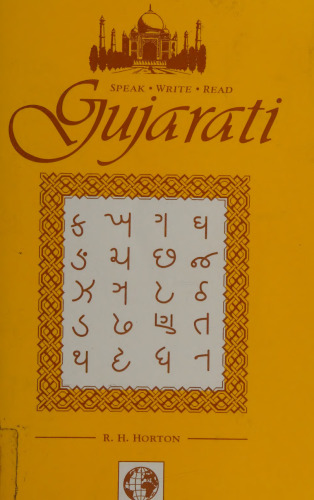 SPEAK • WRITE • READ
Gujarati
ક ખ ગ ઘ
ઙ ચ છ જ
ઝ ઞ ટ ઠ
ડ ઢ ણ ત
થ દ ધ ન
R. H. HORTON